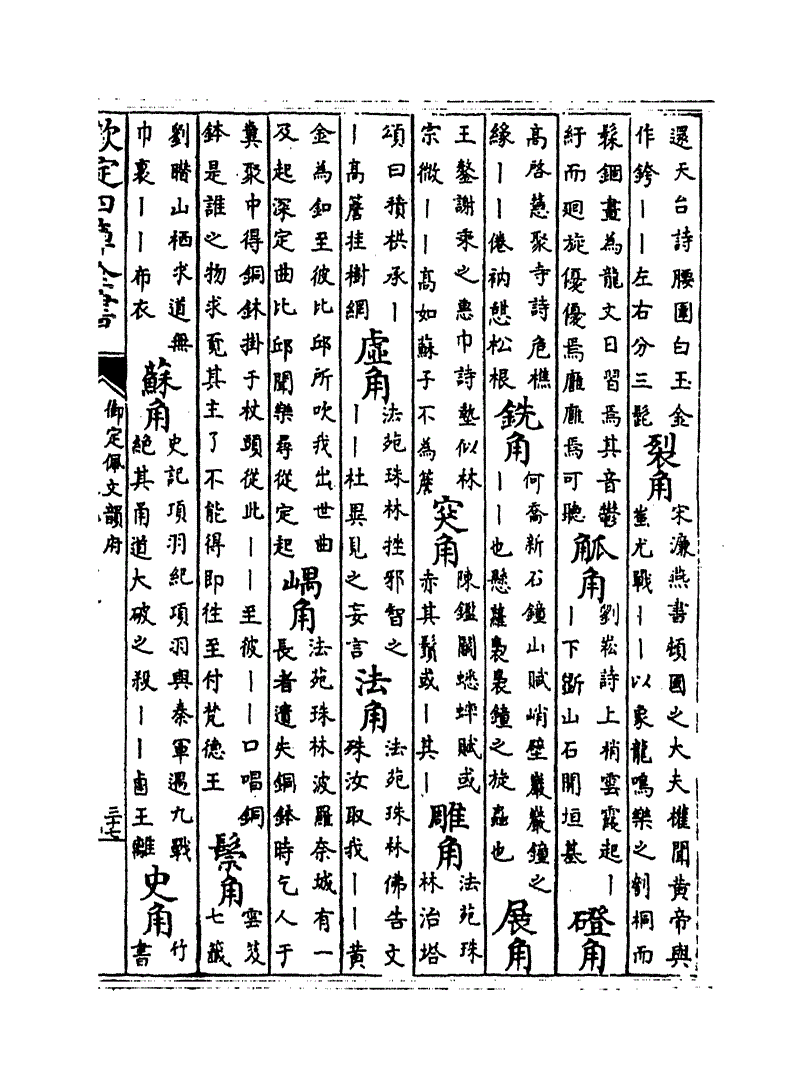 還天台詩腰圍白玉金
作銙丨丨左右分三髭
裂角
宋濂燕書頓國之大夫權聞黄帝與
蚩尤戰丨丨以象龍鳴樂之刳桐而
髹錮畫為龍文日習焉其音鬱
紆而廻旋優優焉廱廱焉可聽
觚角
劉崧詩上梢雲霓起丨
丨下斷山石開垣基
磴角
高啓慈聚寺詩危樵
緣丨丨倦衲憇松根
銑角
何喬新石鐘山賦峭壁巖巖鐘之
丨丨也懸蘿裊裊鐘之旋蟲也
展角
王鏊謝秉之惠巾詩墊似林
宗微丨丨高如蘇子不為簷
突角
陳鑑鬭蟋蟀賦或
赤其鬚或丨其丨
雕角
法苑珠
林治塔
頌曰積栱承丨
丨高簷挂樹網
虛角
法苑珠林挫邪智之
丨丨杜異見之妄言
法角
法苑珠林佛告文
殊汝取我丨丨黄
金為釦至彼比邱所吹我出世曲
及起深定曲比邱聞樂尋從定起
嵎角
法苑珠林波羅奈城有一
長者遺失銅鉢時乞人于
糞聚中得銅鉢掛于杖頭從此丨丨至彼丨丨口唱銅
鉢是誰之物求覓其主了不能得即往至付梵德王
鬃角
雲笈
七籤
劉山栖求道無
巾裹丨丨布衣
蘇角
史記項羽紀項羽與秦軍遇九戰
絕其甬道大破之殺丨丨鹵王離
史角
竹
書
欽定四庫全書
御定佩文韻府
三十七